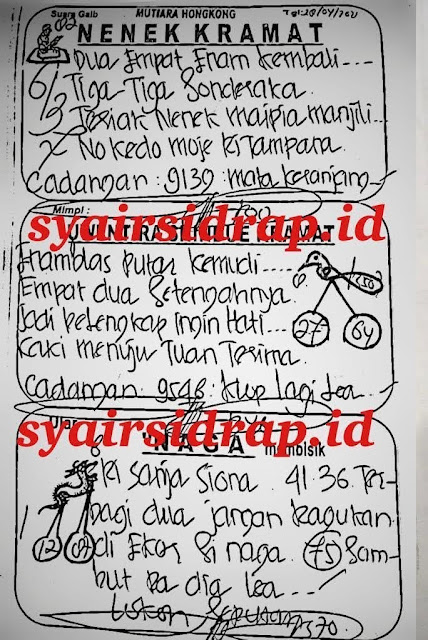 Suara Gaib MUTIARA HONGKONG
NENEK KRAMAT
Dua Empat Enam kembali....
6/ Tiga-Tiga Sonderaka.
Nenek
No kedo moje ki Tampara.
Cadangan : 9139 : mata keranjang
Mimpi :
syairsidrap.id
KRAMAT
Enamblas putar kemudi....
Empat dua Setengahnya.
Jadi pelengkap Ingin Hati...
27 64
Kaki menuju Tuan Terima.
Cadangan : 9548 : kup lagi Lea
syairsidrap.id
"NAGA" membisik
ki sanja Siona . 41.36. Ter-
bagi dua jangan ragukan
12 di Ekor Si naga. 75 Sam-
but Ra dia lea